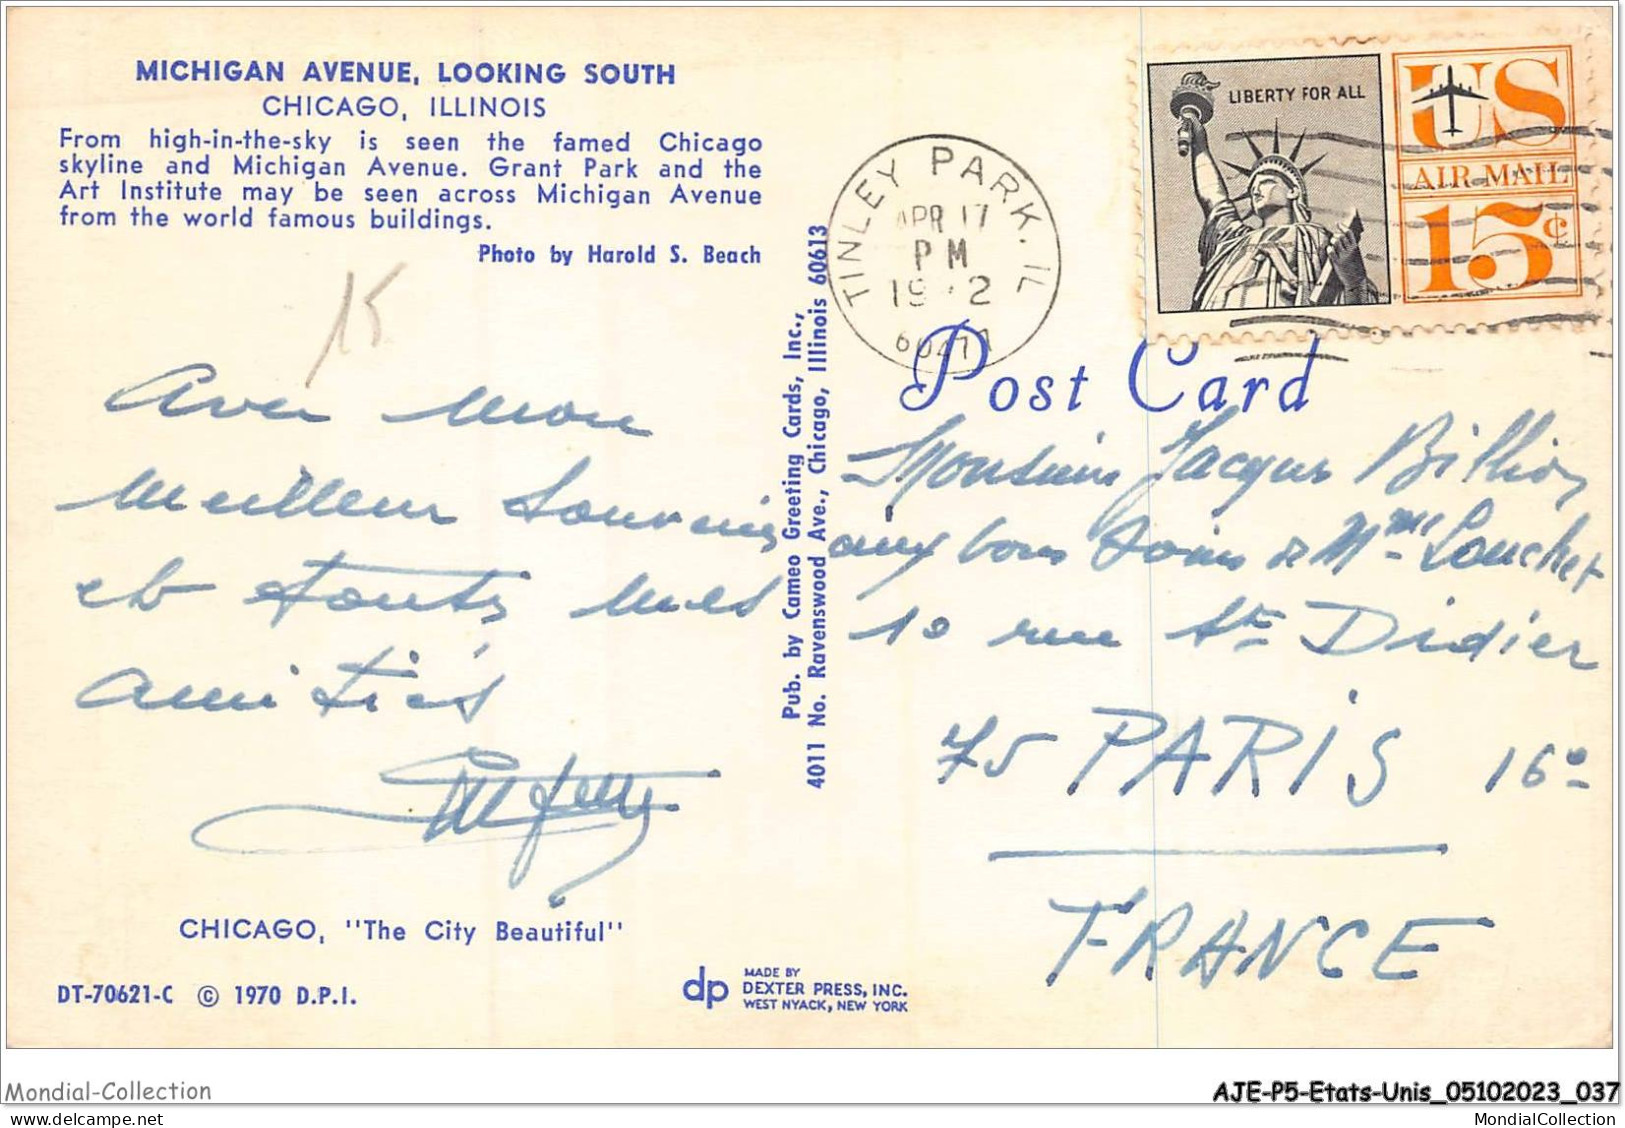 MICHIGAN AVENUE, LOOKING SOUTH
CHICAGO, ILLINOIS
From high-in-the-sky is seen the famed Chicago
skyline and Michigan Avenue. Grant Park and the
Art Institute may be seen across Michigan Avenue
from the world famous buildings.
Photo by Harold S. Beach
15
Avec mon
meilleur souvenir
et toutes mes
amitiés
CHICAGO, "The City Beautiful"
DT-70621-C © 1970 D.P.I.
Pub. by Cameo Greeting Cards, Inc.,
4011 No. Ravenswood Ave., Chicago, Illinois 60613
dp
MADE BY
DEXTER PRESS, INC.
WEST NYACK, NEW YORK
TINLEY PARK. IL
APR 17
PM
19 2
60477
LIBERTY FOR ALL
US
AIR MAIL
15¢
Post Card
Monsieur Jacques Billion
aux bons soins de Mme Louchet
10 rue St Didier
75 PARIS 16e
FRANCE
Mondial-Collection
AJE-P5-Etats-Unis_05102023_037
Mondial-Collection.com
MondialCollection